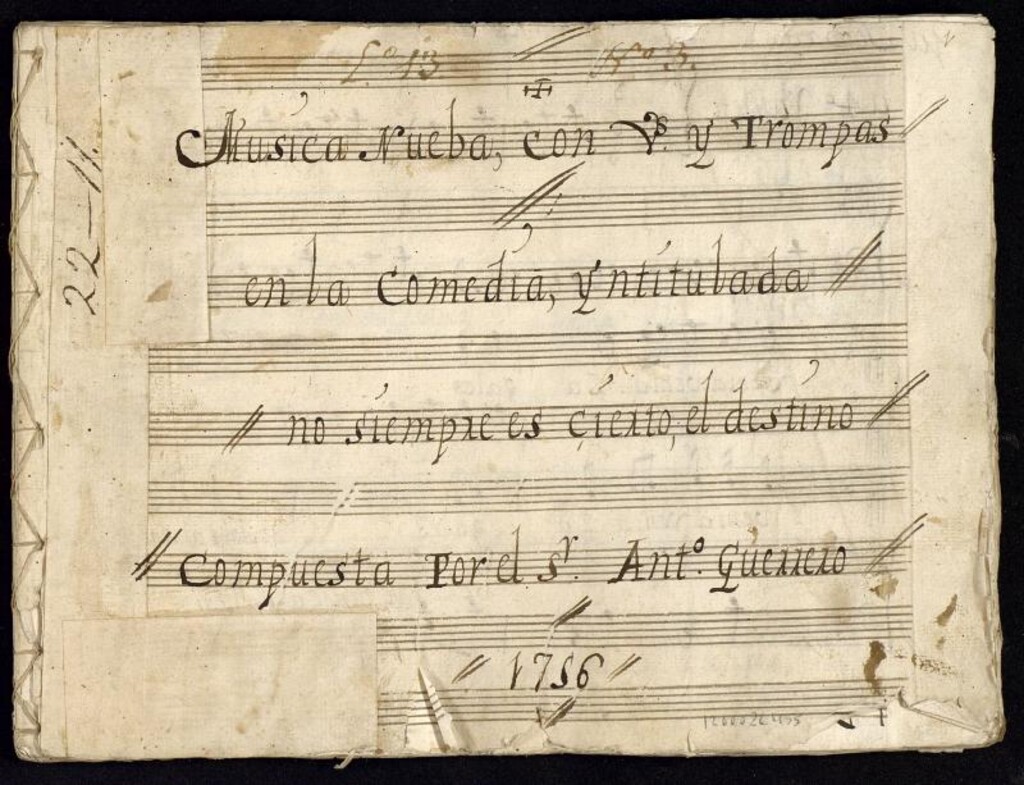 L.º 13 N.º 3.
Musica Nueba, con V.s y Trompas
22-11.
en la Comedia, Yntitulada
no siempre es cierto, el destino
Compuesta Por el S.r Ant.º Guerrero
1756